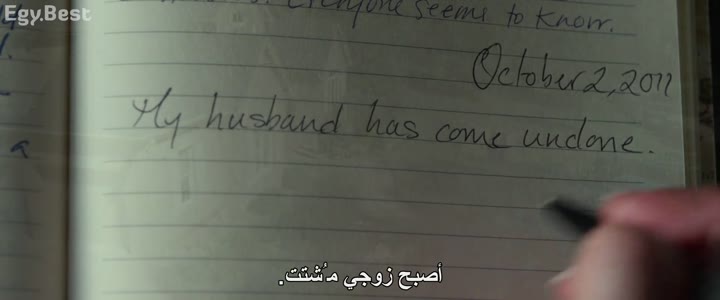 Egy.Best
Everyone seems to know.
October 2, 2011
a
My husband has come undone.
أصبح زوجي مُشتت.